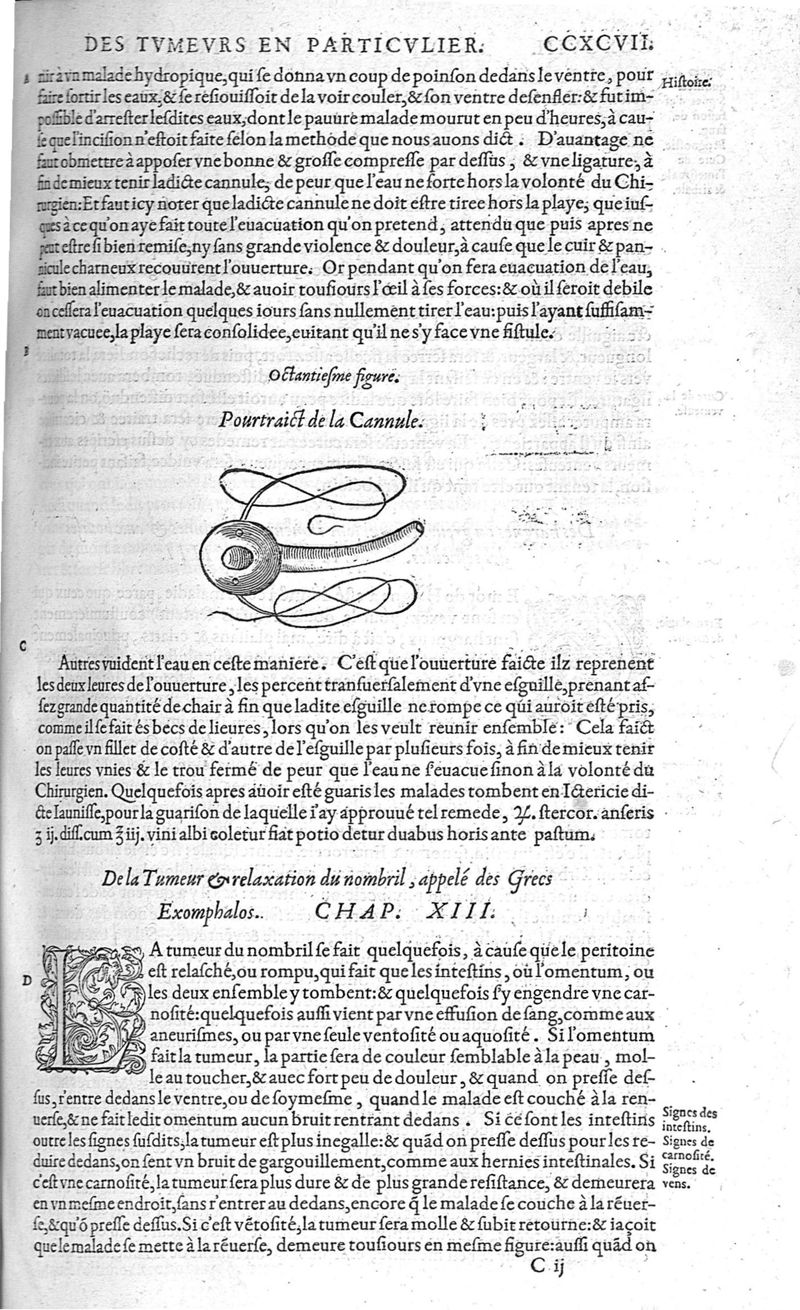 DES TVMEVRS EN PARTICVLIER. CCXCVII.
nir à vn malade hydropique, qui ſe donna vn coup de poinſon dedans le ventre, pour
Hiſtoire.
faire ſortir les eaux, & ſe reſiouiſſoit de la voir couler, & ſon ventre deſenfler: & fut im-
poſſible d'arreſter leſdites eaux, dont le pauure malade mourut en peu d'heures, à cau-
ſe que l'inciſion n'eſtoit faite ſelon la methode que nous auons dict. D'auantage ne
faut obmettre à appoſer vne bonne & groſſe compreſſe par deſſus, & vne ligature, à
fin de mieux tenir ladicte cannule, de peur que l'eau ne ſorte hors la volonté du Chi-
rurgien: Et faut icy noter que ladicte cannule ne doit eſtre tiree hors la playe, que iuſ-
ques à ce qu'on aye fait toute l'euacuation qu'on pretend, attendu que puis apres ne
peut eſtre ſi bien remiſe, ny ſans grande violence & douleur, à cauſe que le cuir & pan-
nicule charneux recouurent l'ouuerture. Or pendant qu'on fera euacuation de l'eau,
faut bien alimenter le malade, & auoir touſiours l'œil à ſes forces: & où il ſeroit debile
on ceſſera l'euacuation quelques iours ſans nullement tirer l'eau: puis l'ayant ſuffiſam-
ment vacuee, la playe ſera conſolidee, euitant qu'il ne s'y face vne fiſtule.
B
Octantieſme figure.
Pourtraict de la Cannule.
C
Autres vuident l'eau en ceſte maniere. C'eſt que l'ouuerture faicte ilz reprenent
les deux leures de l'ouuerture, les percent tranſuerſalement d'vne eſguille, prenant aſ-
ſez grande quantité de chair à fin que ladite eſguille ne rompe ce qui auroit eſté pris,
comme il ſe fait és becs de lieures, lors qu'on les veult reunir enſemble: Cela faict
on paſſe vn fillet de coſté & d'autre de l'eſguille par pluſieurs fois, à fin de mieux tenir
les leures vnies & le trou fermé de peur que l'eau ne ſ'euacue ſinon à la volonté du
Chirurgien. Quelquefois apres auoir eſté guaris les malades tombent en Ictericie di-
cte Iauniſſe, pour la guariſon de laquelle i'ay approuué tel remede, ♃. ſtercor. anſeris
ʒ ij. diſſ. cum ℥ iij. vini albi coletur fiat potio detur duabus horis ante paſtum.
De la Tumeur & relaxation du nombril, appelé des Grecs
Exomphalos. CHAP. XIII.
LA tumeur du nombril ſe fait quelquefois, à cauſe que le peritoine
D
eſt relaſché, ou rompu, qui fait que les inteſtins, où l'omentum, ou
les deux enſemble y tombent: & quelquefois ſ'y engendre vne car-
noſité: quelquefois auſſi vient par vne effuſion de ſang, comme aux
aneuriſmes, ou par vne ſeule ventoſité ou aquoſité. Si l'omentum
fait la tumeur, la partie ſera de couleur ſemblable à la peau, mol-
le au toucher, & auec fort peu de douleur, & quand on preſſe deſ-
ſus, r'entre dedans le ventre, ou de ſoymeſme, quand le malade eſt couché à la ren-
uerſe, & ne fait ledit omentum aucun bruit rentrant dedans. Si ce ſont les inteſtins
Signes des
inteſtins.
outre les ſignes ſuſdits, la tumeur eſt plus inegalle: & quãd on preſſe deſſus pour les re-
Signes de
carnoſité.
duire dedans, on ſent vn bruit de gargouillement, comme aux hernies inteſtinales. Si
Signes de
vens.
c'eſt vne carnoſité, la tumeur ſera plus dure & de plus grande reſiſtance, & demeurera
en vn meſme endroit, ſans r'entrer au dedans, encore q̃ le malade ſe couche à la rẽuer-
ſe, & qu'õ preſſe deſſus. Si c'eſt vẽtoſité, la tumeur ſera molle & ſubit retourne: & iaçoit
que le malade ſe mette à la rẽuerſe, demeure touſiours en meſme figure: auſſi quãd on
C ij